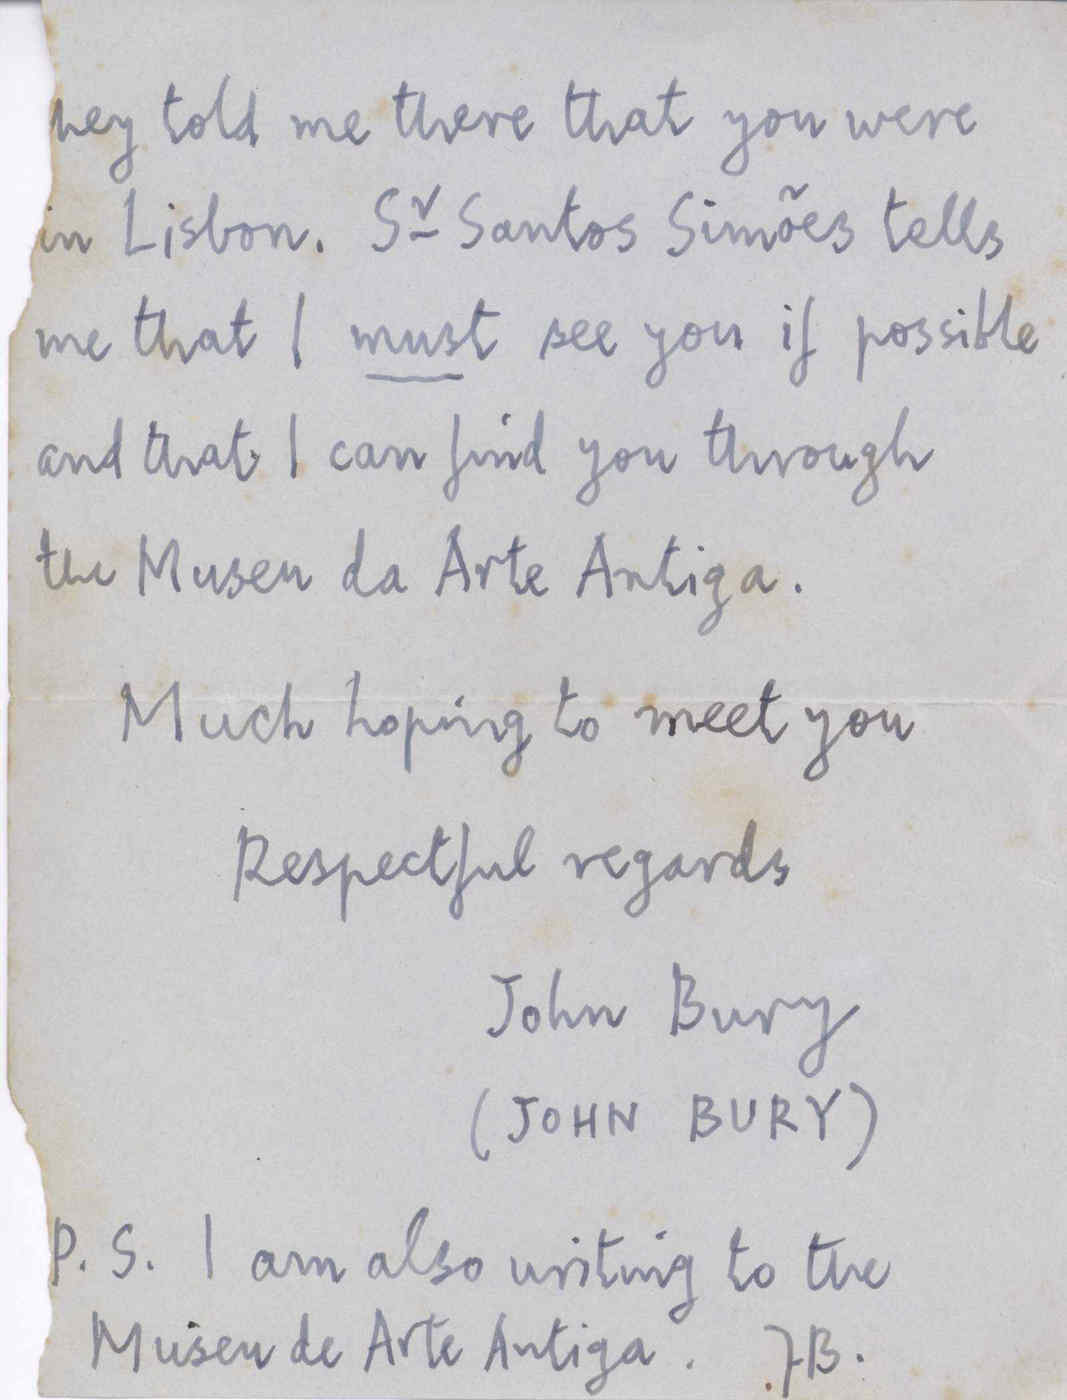 hey told me there that you were
in Lisbon. Sr Santos Simões tells
me that I must see you if possible
and that I can find you through
the Museu da Arte Antiga.
Much hoping to meet you
Respectful regards
John Bury
(JOHN BURY)
P. S. I am also writing to the
Museu de Arte Antiga. JB.